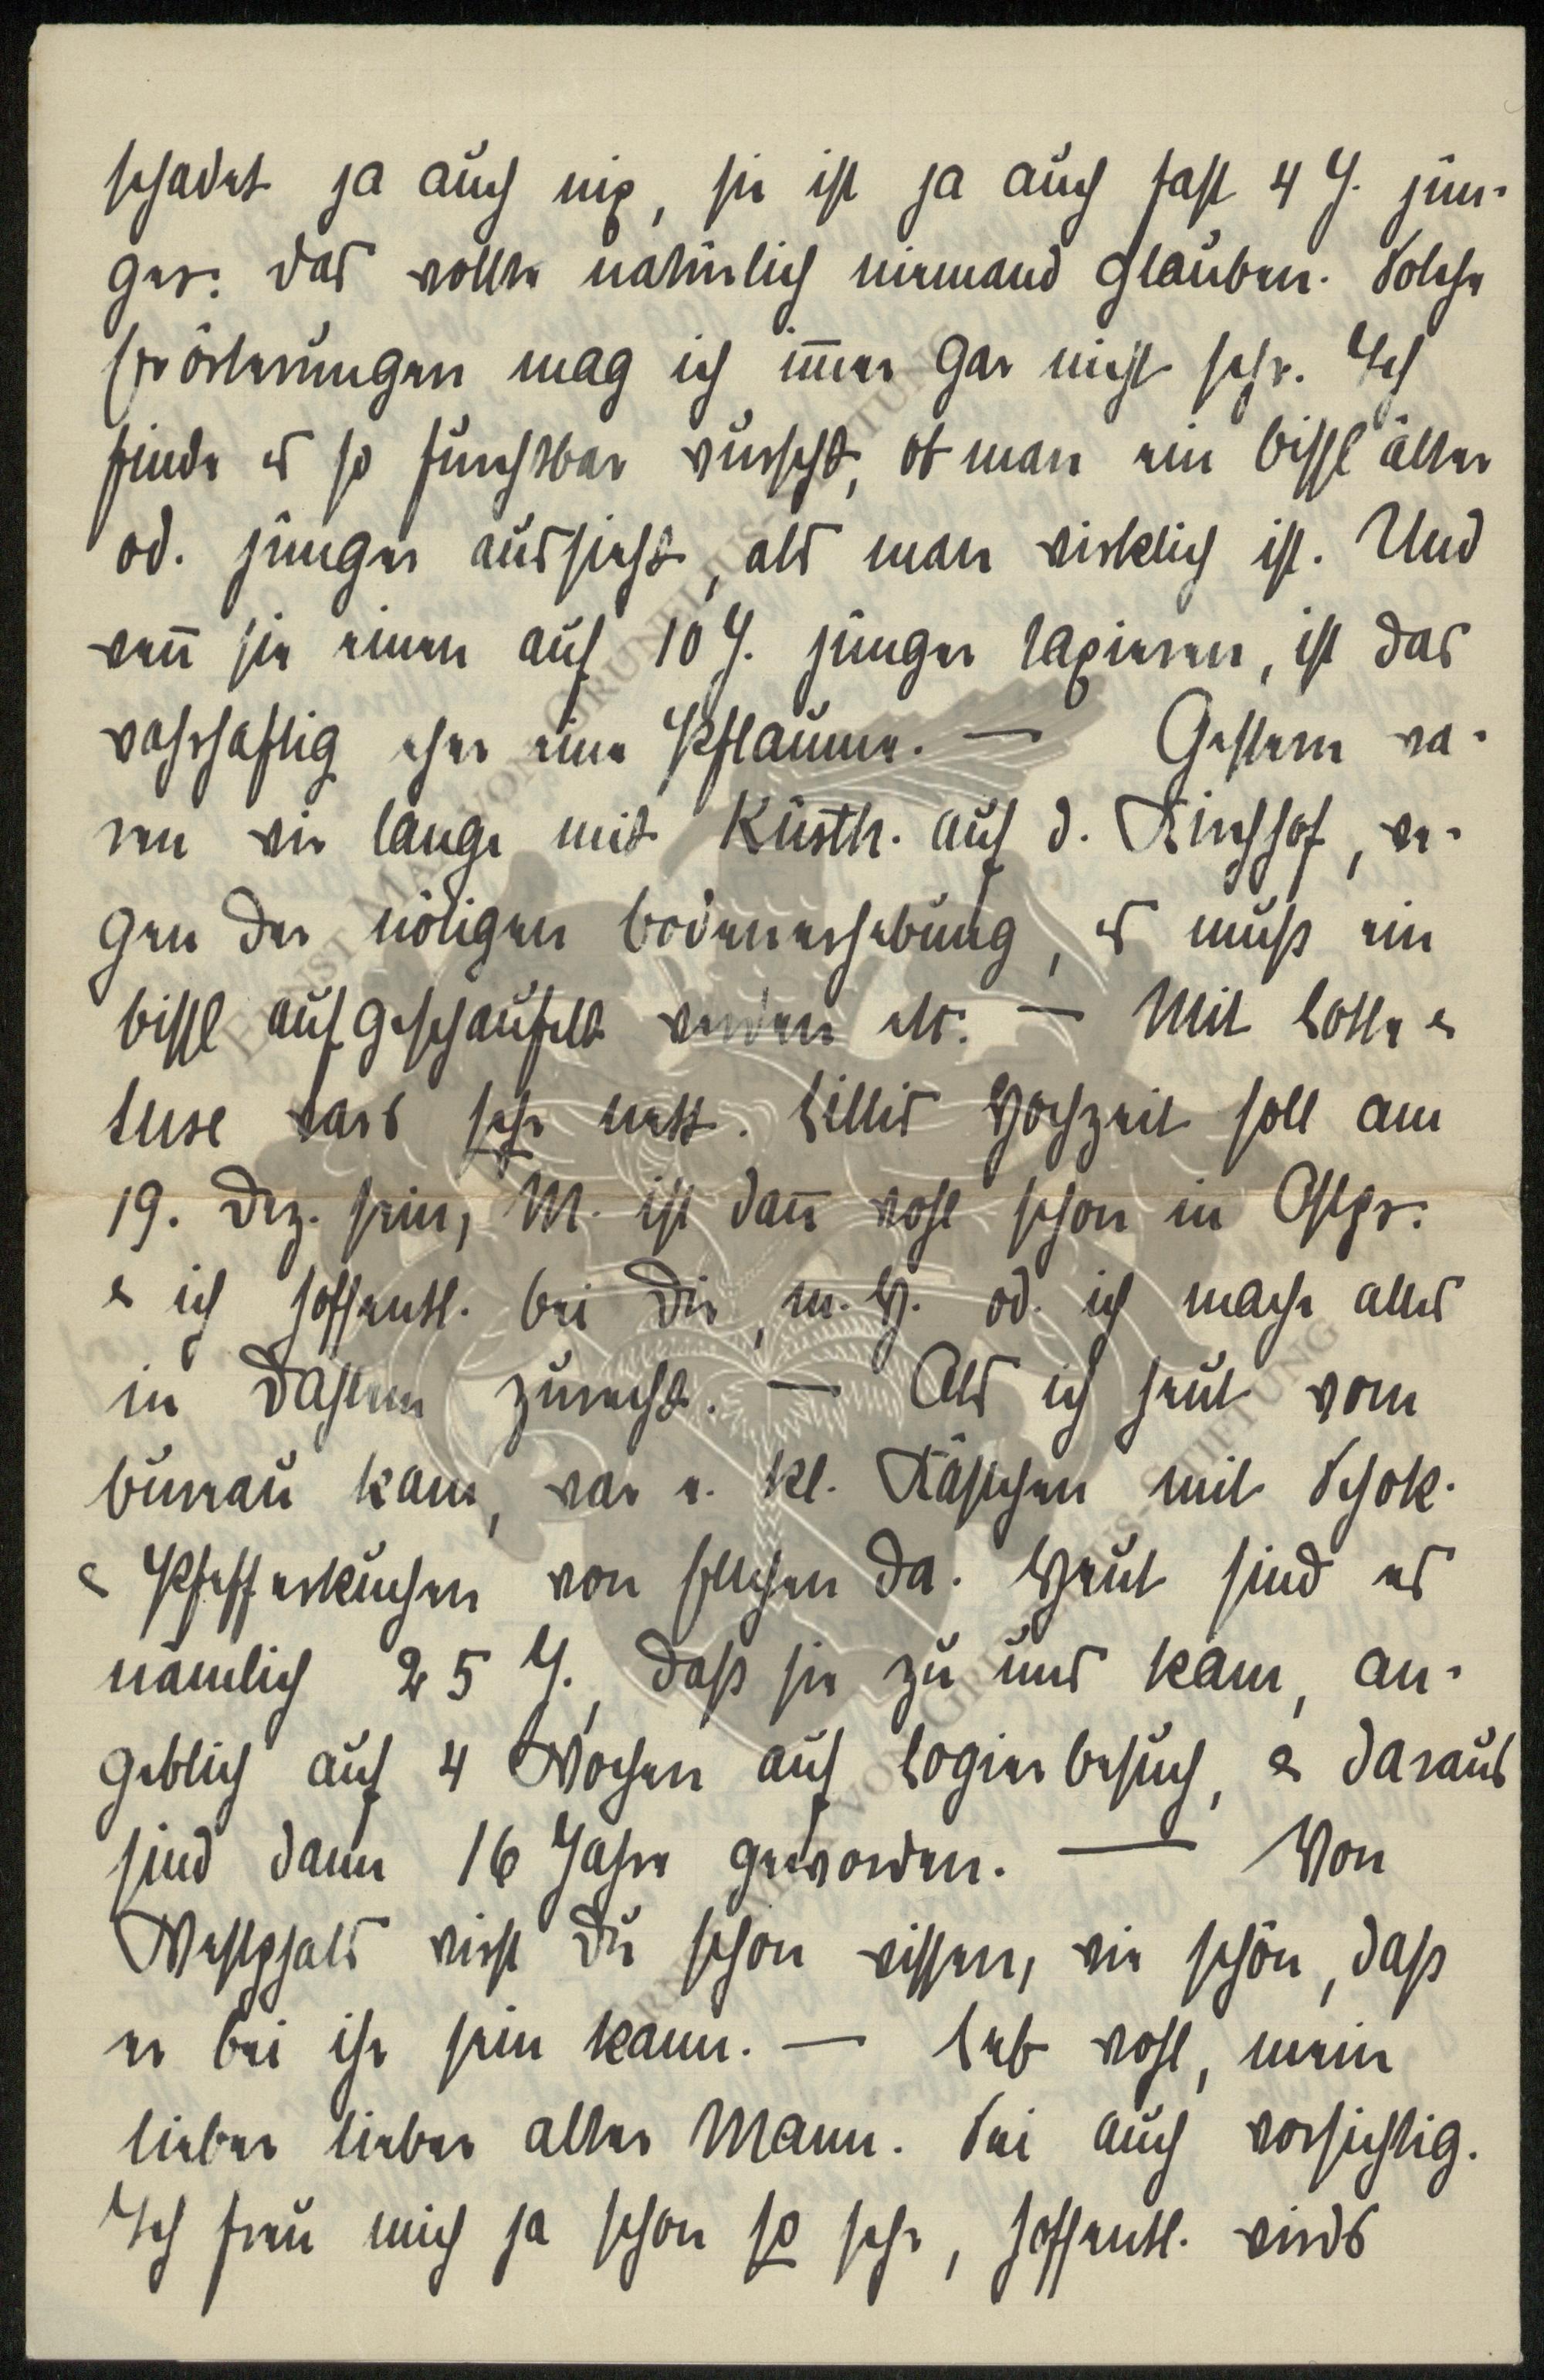 schadet ja auch nix, sie ist ja auch fast 4 J. jün-
ger. Das wollte natürlich niemand glauben. Solche
Erörterungen mag ich im̄er gar nicht sehr. Ich
finde es so furchtbar wurscht, ob man ein bissl älter
od. jünger aussieht, als man wirklich ist. Und
wen̄ sie einen auf 10 J. jünger taxieren, ist das
wahrhaftig eher eine Pflaume. — Gestern wa-
ren wir lange mit Küsth. auf d. Kirchhof, we-
gen der nötigen Bodenerhebung, es muß ein
bissl aufgeschaufelt werden etc. — Mit Lotte &
Tuse wars sehr nett. Lillis Hochzeit soll am
19. Dez. sein, M. ist dan̄ wohl schon in Ostpr.
& ich hoffentl. bei Dir, m. H. od. ich mache alles
in Dahlem zurecht. — Als ich heut vom
Bureau kam, war e. kl. Kästchen mit Schok.
& Pfefferkuchen von Ellchen da. Heut sind es
nämlich 25 J., daß sie zu uns kam, an-
geblich auf 4 Wochen auf Logierbesuch, & daraus
sind dann 16 Jahre geworden. — Von
Westphals wirst Du schon wissen, wie schön, daß
er bei ihr sein kann. — Leb wohl, mein
lieber lieber alter Mann. Sei auch vorsichtig.
Ich freu mich ja schon so sehr, hoffentl. wirds
ERNST MAX VON GRUNELIUS-STIFTUNG
ERNST MAX VON GRUNELIUS-STIFTUNG